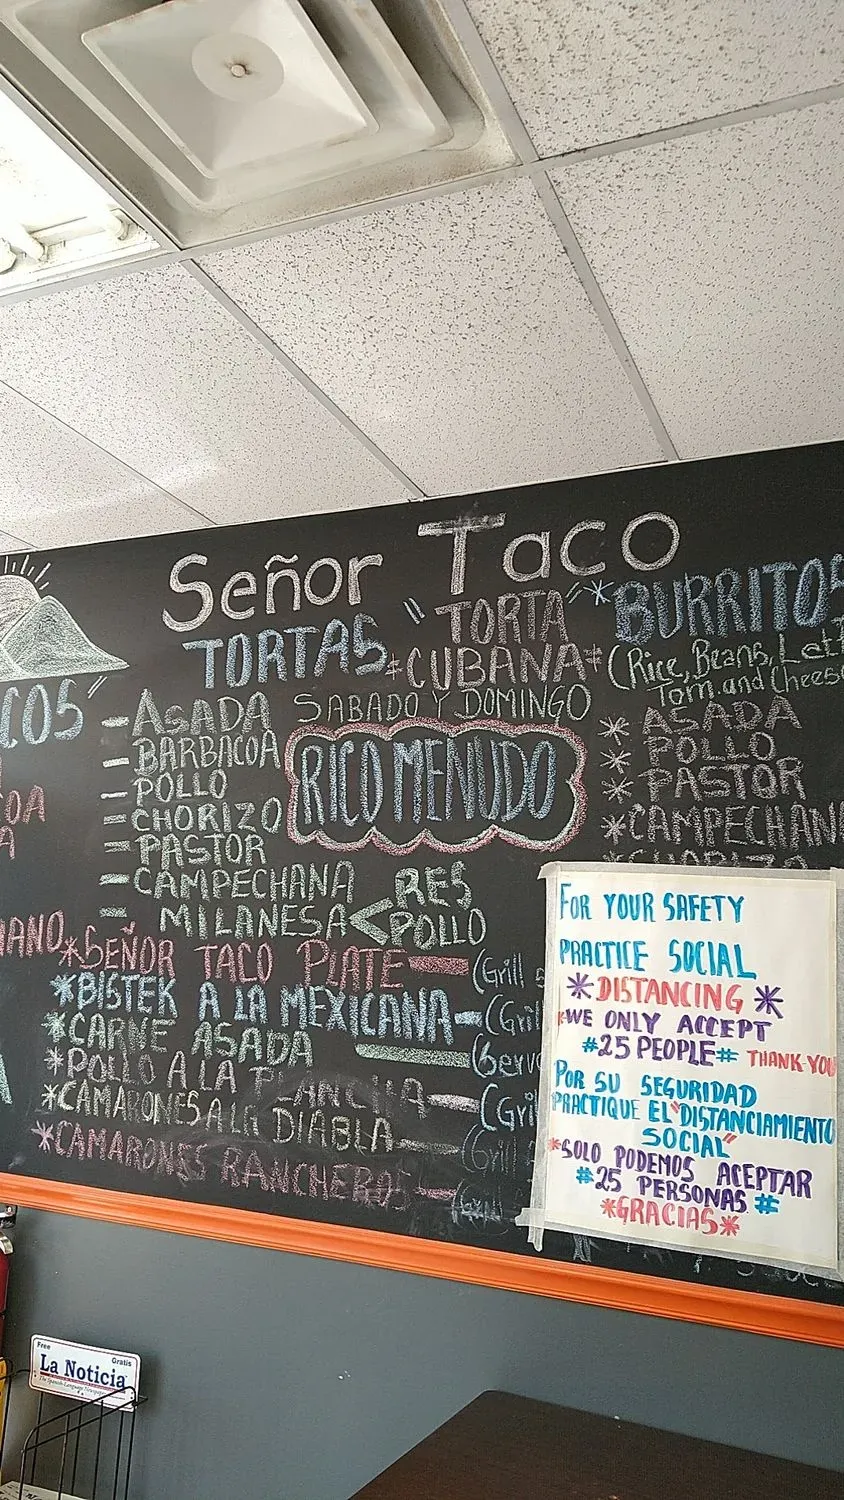 Señor Taco
TORTAS
"TORTA"
CUBANA
SABADO Y DOMINGO
RICO MENUDO
- ASADA
- BARBACOA
- POLLO
- CHORIZO
- PASTOR
- CAMPECHANA
- MILANESA < RES
POLLO
*BURRITOS
(Rice, Beans, Lett
Tom. and Cheese
* ASADA
* POLLO
* PASTOR
* CAMPECHANA
COS"
OA
A
ANO
*SEÑOR TACO PLATE - (Grill
*BISTEK A LA MEXICANA - (Gril
*CARNE ASADA - (Serv
*POLLO A LA PLANCHA - (Gri
*CAMARONES A LA DIABLA - (Gril
*CAMARONES RANCHEROS - (Gril
FOR YOUR SAFETY
PRACTICE SOCIAL
*DISTANCING*
*WE ONLY ACCEPT
#25 PEOPLE# THANK YOU
POR SU SEGURIDAD
PRACTIQUE EL "DISTANCIAMIENTO
SOCIAL"
*SOLO PODEMOS ACEPTAR
#25 PERSONAS#
*GRACIAS*
Free
Gratis
La Noticia
The Spanish-Language Newspaper